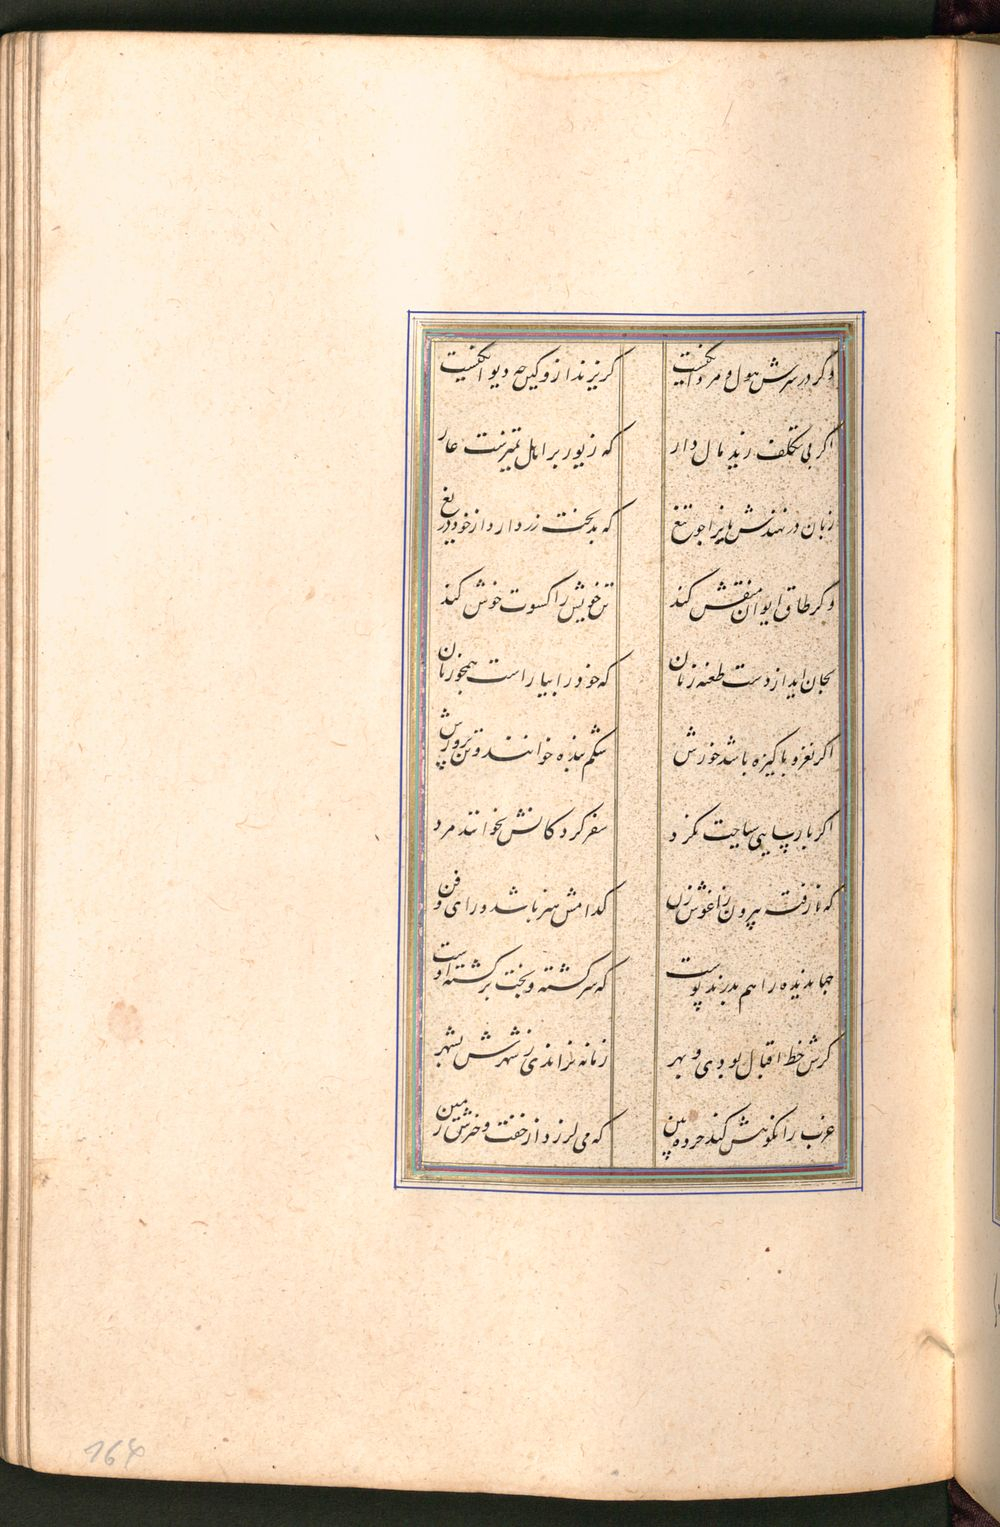 وکر در سرش هول و مردانکیست کریزند ازو کین چه دیوانکیست
اکر بی تکلف زید مال دار که زیور بر اهل تمیزست عار
زبان در نهندش بایذا چو تیغ که بدبخت زر دارد از خود دریغ
وکر طاق ایوان منقش کند تن خویش را کسوت خوش کند
بجان اید از دست طعنه زنان که خود را بیاراست همچو زنان
اکر نغز و پاکیزه باشد خورش شکم بنده خوانند و تن پرورش
اکر پارسایی سیاحت نکرد سفر کردکانش نخوانند مرد
که نارفته بیرون ز اغوش زن کدامش هنر باشد و رای و فن
جهاندیده را هم بدرند پوست که سرکشته و بخت برکشته اوست
کرش حظ اقبال بودی و بهر زمانه نراندی ز شهرش بشهر
عزب را نکوهش کند خرده بین که می لرزد از خفت و خیزش زمین
164